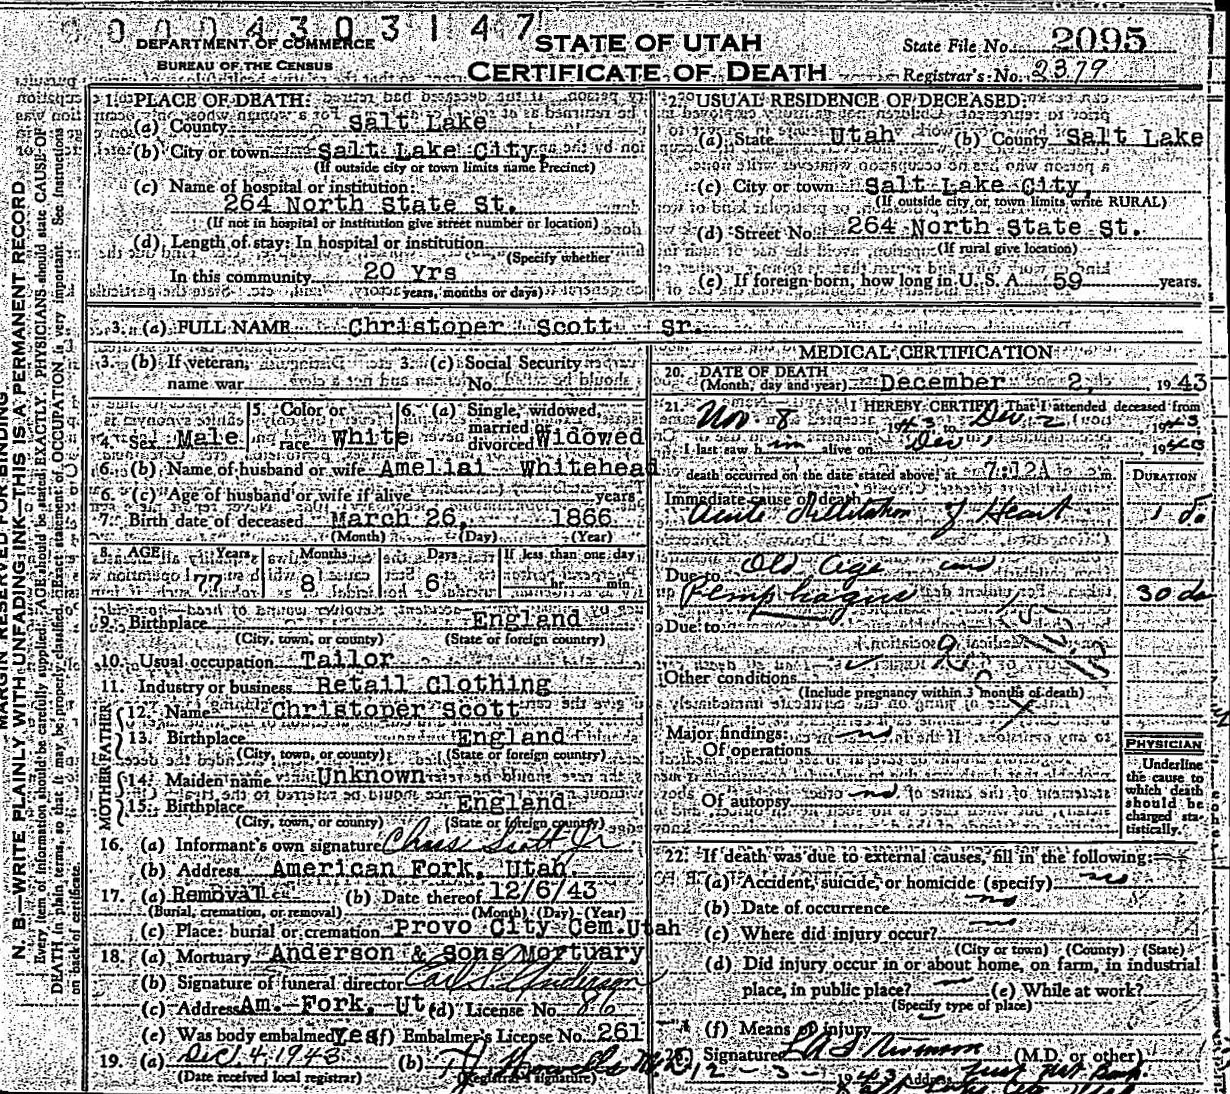 0004303147
DEPARTMENT OF COMMERCE
BUREAU OF THE CENSUS
STATE OF UTAH
CERTIFICATE OF DEATH
State File No. 2095
Registrar's No. 2379
1. PLACE OF DEATH:
(a) County Salt Lake
(b) City or town Salt Lake City,
(If outside city or town limits name Precinct)
(c) Name of hospital or institution:
264 North State St.
(If not in hospital or institution give street number or location)
(d) Length of stay: In hospital or institution
(Specify whether
In this community 20 Yrs
years, months or days)
2. USUAL RESIDENCE OF DECEASED:
(a) State Utah (b) County Salt Lake
(c) City or town Salt Lake City,
(If outside city or town limits write RURAL)
(d) Street No. 264 North State St.
(If rural give location)
(e) If foreign born, how long in U. S. A. 59 years.
3. (a) FULL NAME Christoper Scott Sr.
3. (b) If veteran, name war
3. (c) Social Security No.
4. Sex Male
5. Color or race White
6. (a) Single, widowed, married or divorced Widowed
6. (b) Name of husband or wife Ameliai Whitehead
6. (c) Age of husband or wife if alive years
7. Birth date of deceased March 26, 1866
(Month) (Day) (Year)
8. AGE Years Months Days If less than one day
77 8 6 hr. min.
9. Birthplace England
(City, town, or county) (State or foreign country)
10. Usual occupation Tailor
11. Industry or business Retail Clothing
FATHER
12. Name Christoper Scott
13. Birthplace England
(City, town, or county) (State or foreign country)
MOTHER
14. Maiden name Unknown
15. Birthplace England
(City, town, or county) (State or foreign country)
16. (a) Informant's own signature Chris Scott Jr
(b) Address American Fork, Utah.
17. (a) Removal (b) Date thereof 12/6/43
(Burial, cremation, or removal) (Month) (Day) (Year)
(c) Place: burial or cremation Provo City Cem. Utah
18. (a) Mortuary Anderson & Sons Mortuary
(b) Signature of funeral director Anderson
(c) Address Am. Fork, Ut (d) License No. 86
(e) Was body embalmed Yes (f) Embalmer's License No. 261
19. (a) Dec 4 1943 (b)
(Date received local registrar) (Registrar's signature)
MEDICAL CERTIFICATION
20. DATE OF DEATH
(Month, day and year) December 2, 1943
21. I HEREBY CERTIFY, That I attended deceased from
Nov 8 1943 to Dec 2 1943
I last saw him alive on Dec 1 1943
death occurred on the date stated above, at 7:12A m.
DURATION
Immediate cause of death
Acute Dilitation of Heart 1 da
Due to Old Age and
Pemphagus 30 da
Due to
Other conditions
(Include pregnancy within 3 months of death)
Major findings:
Of operations no
Of autopsy no
PHYSICIAN
Underline
the cause to
which death
should be
charged sta-
tistically.
22. If death was due to external causes, fill in the following:
(a) Accident, suicide, or homicide (specify) no
(b) Date of occurrence no
(c) Where did injury occur? no
(City or town) (County) (State)
(d) Did injury occur in or about home, on farm, in industrial
place, in public place? (e) While at work?
(Specify type of place)
(f) Means of injury
23. Signature (M.D. or other)
12-3-1943 Address
MARGIN RESERVED FOR BINDING
N. B.—WRITE PLAINLY, WITH UNFADING INK—THIS IS A PERMANENT RECORD
Every item of information should be carefully supplied. AGE should be stated EXACTLY. PHYSICIANS should state CAUSE OF
DEATH in plain terms, so that it may be properly classified. Exact statement of OCCUPATION is very important. See Instructions
on back of certificate.